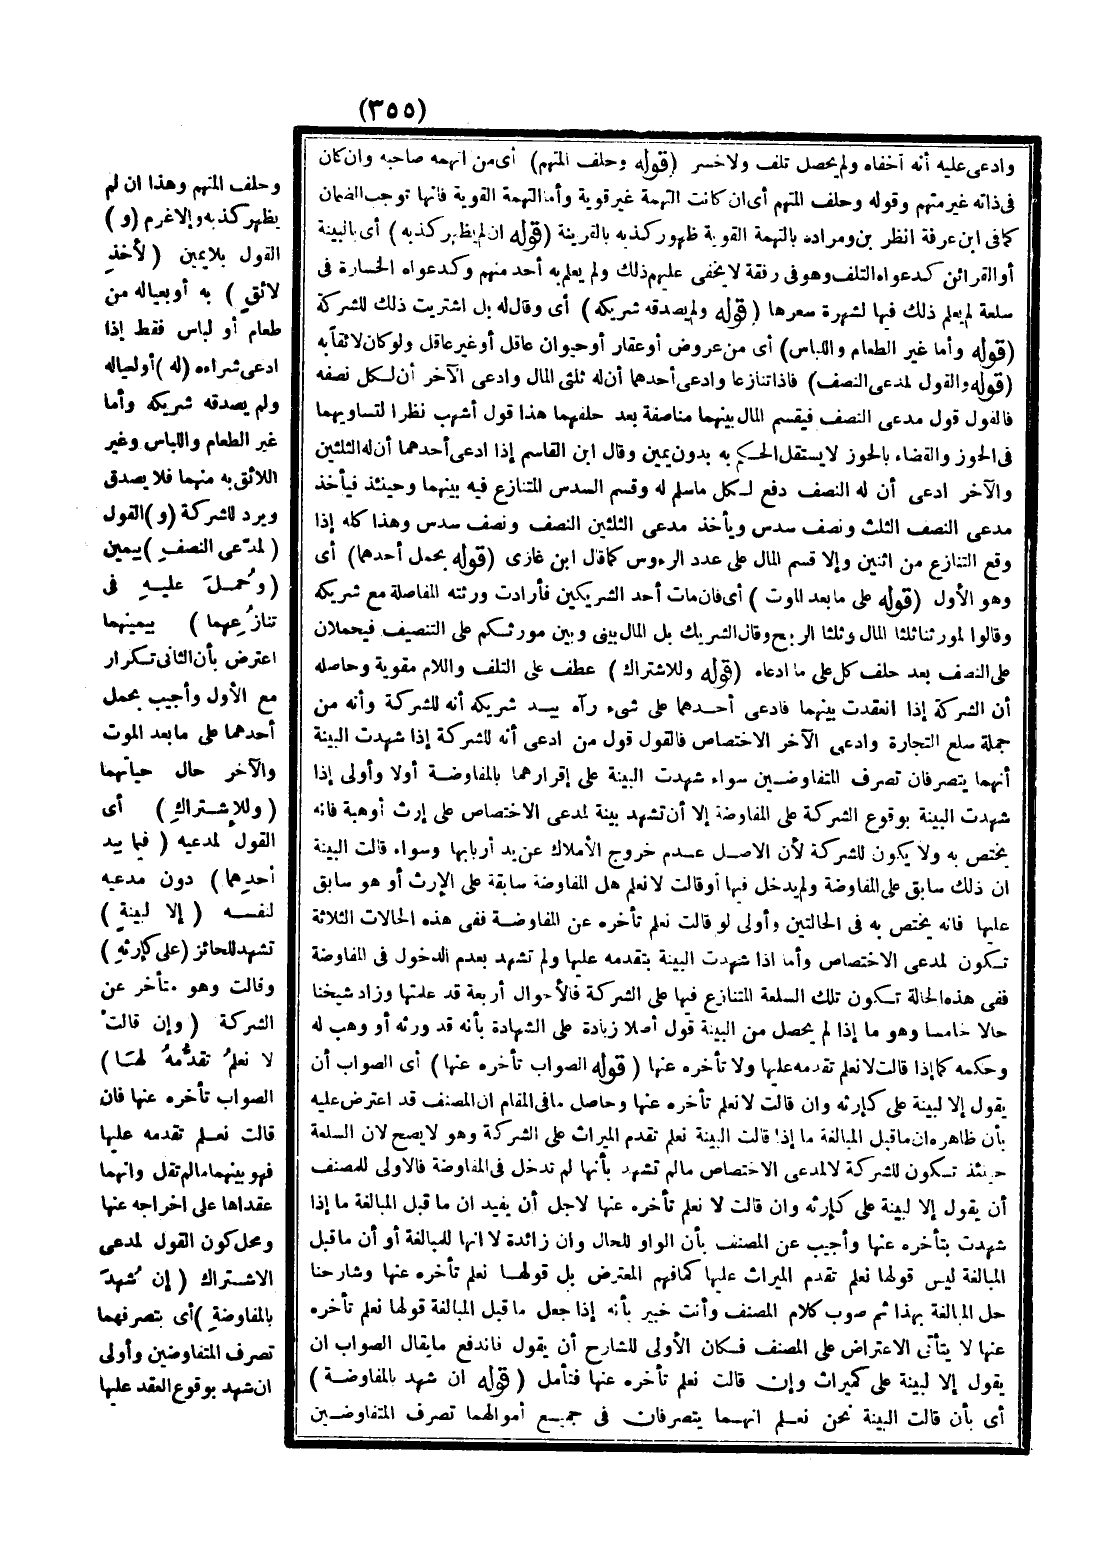 (٣٥٥)
وادعى عليه أنه أخفاه ولم يحصل تلف ولا خسر (قوله وحلف المتهم) أى من اتهمه صاحبه وان كان
فى ذاته غير متهم وقوله وحلف المتهم أى ان كانت التهمة غير قوية وأما التهمة القوية فانها توجب الضمان
كما فى ابن عرفة انظر بن ومراده بالتهمة القوية ظهور كذبه بالقرينة (قوله ان لم يظهر كذبه) أى بالبينة
أو القرائن كدعواه التلف وهو فى رفقة لا يخفى عليهم ذلك ولم يعلم به أحد منهم وكدعواه الخسارة فى
سلعة لم يعلم ذلك فيها لشهرة سعرها (قوله ولم يصدقه شريكه) أى وقال له بل اشتريت ذلك للشركة
(قوله وأما غير الطعام واللباس) أى من عروض أو عقار أو حيوان عاقل أو غير عاقل ولو كان لائقاً به
(قوله والقول لمدعى النصف) فاذا تنازعا وادعى أحدهما أن له ثلثى المال وادعى الآخر أن لكل نصفه
فالقول قول مدعى النصف فيقسم المال بينهما مناصفة بعد حلفهما هذا قول أشهب نظرا لتساويهما
فى الحوز والقضاء بالحوز لا يستقل الحكم به بدون يمين وقال ابن القاسم إذا ادعى أحدهما أن له الثلثين
والآخر ادعى أن له النصف دفع لكل ماسلم له وقسم السدس المتنازع فيه بينهما وحينئذ فيأخذ
مدعى النصف الثلث ونصف سدس ويأخذ مدعى الثلثين النصف ونصف سدس وهذا كله إذا
وقع التنازع من اثنين وإلا قسم المال على عدد الرءوس كما قال ابن غازى (قوله بحمل أحدهما) أى
وهو الأول (قوله على ما بعد الموت) أى فان مات أحد الشريكين فأرادت ورثته المفاصلة مع شريكه
وقالوا لمورثنا ثلثا المال وثلثا الربح وقال الشريك بل المال بينى وبين مورثكم على التنصيف فيحملان
على النصف بعد حلف كل على ما ادعاه (قوله وللاشتراك) عطف على التلف واللام مقوية وحاصله
أن الشركة إذا انعقدت بينهما فادعى أحدهما على شىء رآه بيد شريكه أنه للشركة وأنه من
جملة سلع التجارة وادعى الآخر الاختصاص فالقول قول من ادعى أنه للشركة إذا شهدت البينة
أنهما يتصرفان تصرف المتفاوضين سواء شهدت البينة على إقرارهما بالمفاوضة أولا وأولى إذا
شهدت البينة بوقوع الشركة على المفاوضة إلا أن تشهد بينة لمدعى الاختصاص على إرث أو هبة فانه
يختص به ولا يكون للشركة لأن الاصل عدم خروج الأملاك عن يد أربابها وسواء قالت البينة
ان ذلك سابق على المفاوضة ولم يدخل فيها أو قالت لا نعلم هل المفاوضة سابقة على الإرث أو هو سابق
عليها فانه يختص به فى الحالتين وأولى لو قالت نعلم تأخره عن المفاوضة ففى هذه الحالات الثلاثة
تكون لمدعى الاختصاص وأما اذا شهدت البينة بتقدمه عليها ولم تشهد بعدم الدخول فى المفاوضة
ففى هذه الحالة تكون تلك السلعة المتنازع فيها على الشركة فالأحوال أربعة قد علمتها وزاد شيخنا
حالا خامسا وهو ما إذا لم يحصل من البينة قول أصلا زيادة على الشهادة بأنه قد ورثه أو وهب له
وحكمه كما إذا قالت لا نعلم تقدمه عليها ولا تأخره عنها (قوله الصواب تأخره عنها) أى الصواب أن
يقول إلا لبينة على كإرثه وان قالت لا نعلم تأخره عنها وحاصل ما فى المقام ان المصنف قد اعترض عليه
بأن ظاهره ان ما قبل المبالغة ما إذا قالت البينة نعلم تقدم الميراث على الشركة وهو لا يصح لان السلعة
حينئذ تكون للشركة لا لمدعى الاختصاص مالم تشهد بأنها لم تدخل فى المفاوضة فالاولى للمصنف
أن يقول إلا لبينة على كإرثه وان قالت لا نعلم تأخره عنها لاجل أن يفيد ان ما قبل المبالغة ما إذا
شهدت بتأخره عنها وأجيب عن المصنف بأن الواو للحال وان زائدة لا انها للمبالغة أو أن ما قبل
المبالغة ليس قولها نعلم تقدم الميراث عليها كما فهم المعترض بل قولها نعلم تأخره عنها وشارحنا
حل المبالغة بهذا ثم صوب كلام المصنف وأنت خبير بأنه إذا جعل ما قبل المبالغة قولها نعلم تأخره
عنها لا يتأتى الاعتراض على المصنف فكان الأولى للشارح أن يقول فاندفع ما يقال الصواب ان
يقول إلا لبينة على كميراث وإن قالت نعلم تأخره عنها فتأمل (قوله ان شهد بالمفاوضة)
أى بأن قالت البينة نحن نعلم انهما يتصرفان فى جميع أموالهما تصرف المتفاوضين
وحلف المتهم وهذا ان لم
يظهر كذبه وإلا غرم (و)
القول بلا يمين (لآخذِ
لائقٍ) به أو بعياله من
طعام أو لباس فقط إذا
ادعى شراءه (له) أو لعياله
ولم يصدقه شريكه وأما
غير الطعام واللباس وغير
اللائق به منهما فلا يصدق
ويرد للشركة (و) القول
(لمدّعى النصفِ) بيمين
(وحُملَ عليهِ فى
تنازُعِهما) بيمينهما
اعترض بأن الثانى تكرار
مع الأول وأجيب بحمل
أحدهما على ما بعد الموت
والآخر حال حياتهما
(وللإشتراكِ) أى
القول لمدعيه (فيما بيد
أحدِهما) دون مدعيه
لنفسه (إلا لبينةٍ)
تشهد للحائز (على كإرثهِ)
وقالت وهو متأخر عن
الشركة (وإن قالتْ
لا نعلمُ تقدُّمهُ لهَا)
الصواب تأخره عنها فان
قالت نعلم تقدمه عليها
فهو بينهما مالم تقل وانهما
عقداها على اخراجه عنها
ومحل كون القول لمدعى
الاشتراك (إن شُهدَ
بالمفاوضةِ) أى بتصرفهما
تصرف المتفاوضين وأولى
ان شهد بوقوع العقد عليها